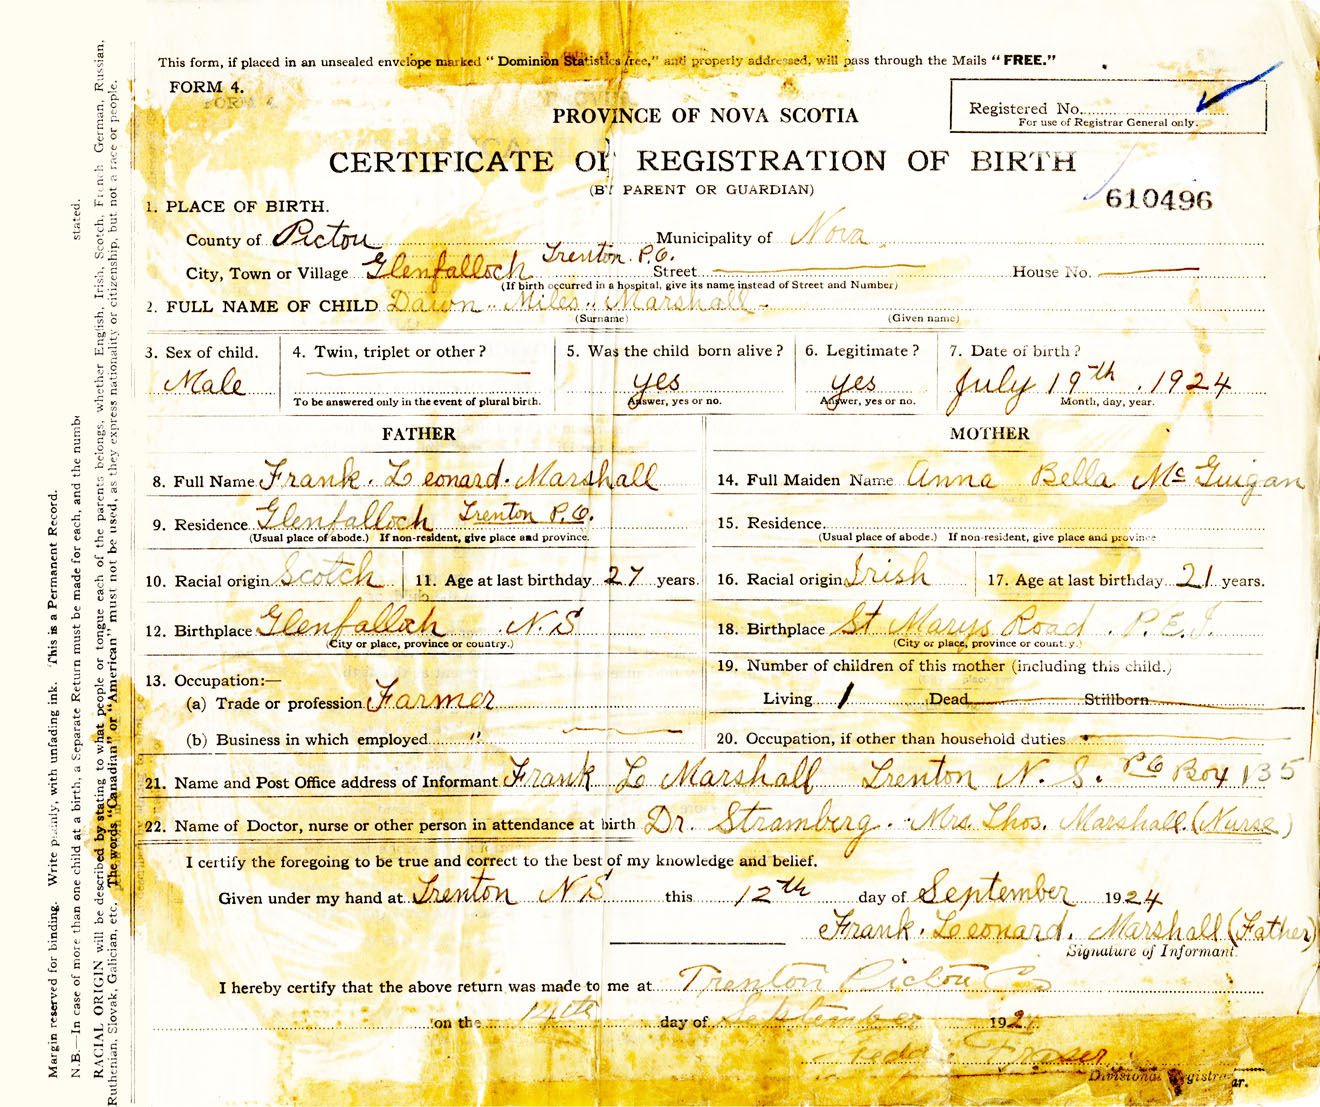 This form, if placed in an unsealed envelope marked "Dominion Statistics free," and properly addressed, will pass through the Mails "FREE."
FORM 4.
Registered No.
For use of Registrar General only.
PROVINCE OF NOVA SCOTIA
CERTIFICATE OF REGISTRATION OF BIRTH
(BY PARENT OR GUARDIAN)
610496
1. PLACE OF BIRTH.
County of Pictou Municipality of Nova
City, Town or Village Glenfalloch Trenton P.O. Street House No.
(If birth occurred in a hospital, give its name instead of Street and Number)
2. FULL NAME OF CHILD Dawn Miles Marshall
(Surname) (Given name)
3. Sex of child. 4. Twin, triplet or other? 5. Was the child born alive? 6. Legitimate? 7. Date of birth?
Male yes yes July 19th. 1924
To be answered only in the event of plural birth. Answer, yes or no. Answer, yes or no. Month, day, year.
FATHER MOTHER
8. Full Name Frank. Leonard. Marshall 14. Full Maiden Name Anna Bella McGuigan
9. Residence Glenfalloch Trenton P.O. 15. Residence
(Usual place of abode.) If non-resident, give place and province. (Usual place of abode.) If non-resident, give place and province
10. Racial origin Scotch 11. Age at last birthday 27 years. 16. Racial origin Irish 17. Age at last birthday 21 years.
12. Birthplace Glenfalloch N.S 18. Birthplace St Marys Road. P.E.I.
(City or place, province or country.) (City or place, province or country.)
13. Occupation:— 19. Number of children of this mother (including this child.)
(a) Trade or profession Farmer Living 1 Dead Stillborn
(b) Business in which employed " 20. Occupation, if other than household duties
21. Name and Post Office address of Informant Frank L Marshall Trenton N. S. PO Box 135
22. Name of Doctor, nurse or other person in attendance at birth Dr. Stramberg. Mrs. Thos. Marshall. (Nurse)
I certify the foregoing to be true and correct to the best of my knowledge and belief.
Given under my hand at Trenton N S this 12th day of September 1924
Frank. Leonard. Marshall (Father)
Signature of Informant.
I hereby certify that the above return was made to me at Trenton Pictou Co
on the 14th day of September 1924
Fraser
Divisional Registrar.
Margin reserved for binding. Write plainly, with unfading ink. This is a Permanent Record.
N.B.—In case of more than one child at a birth, a Separate Return must be made for each, and the numb stated.
RACIAL ORIGIN will be described by stating to what people or tongue each of the parents belongs, whether English, Irish, Scotch, French German, Russian,
Ruthenian, Slovak, Galician, etc. The words "Canadian" or "American" must not be used, as they express nationality or citizenship, but not a race or people.